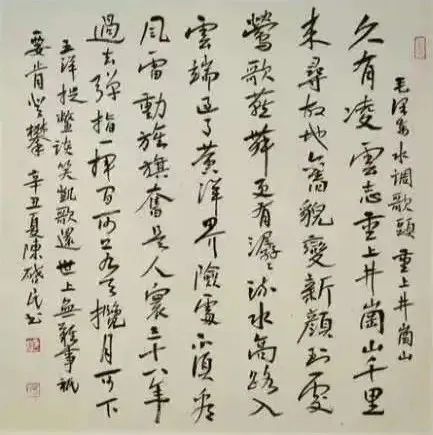 毛澤東水調歌頭 重上井崗山
久有凌雲志重上井崗山千里
來尋故地舊貌變新顔到處
鶯歌燕舞更有潺々流水高路入
雲端過了黃洋界險處不須看
風雷動旌旗奮是人寰三十八年
過去彈指一揮間可上九天攬月可下
五洋捉鱉談笑凱歌還世上無難事祇
要肯登攀 辛丑夏陳啓民書